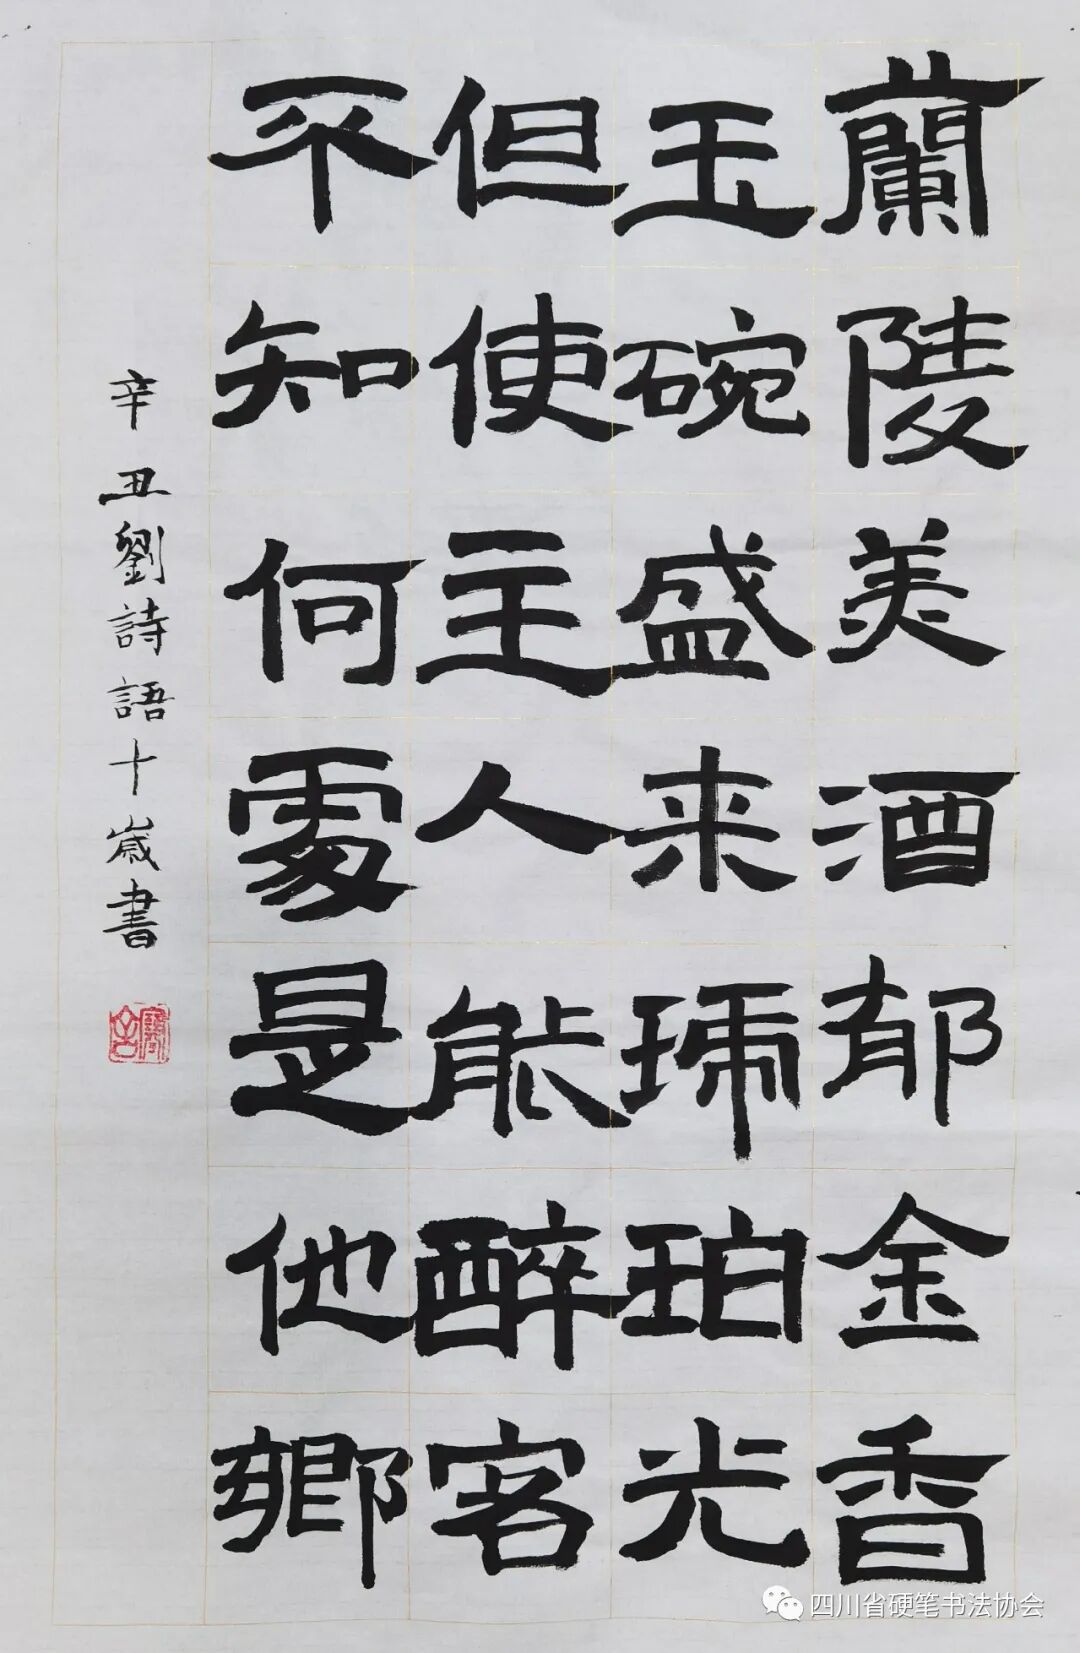 蘭陵美酒郁金香
玉碗盛来琥珀光
但使主人能醉客
不知何處是他鄉
辛丑劉詩語十歲書
四川省硬笔书法协会